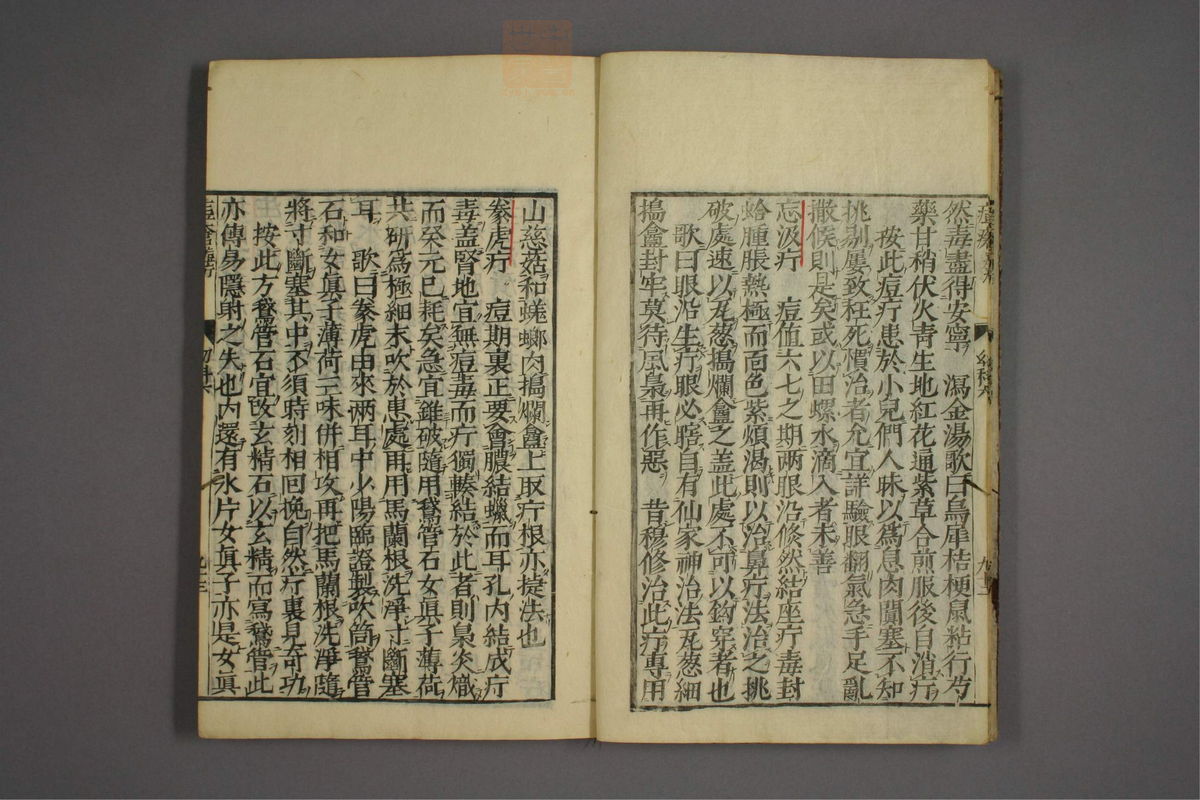 然毒盡得安寧　瀉金湯歌曰烏犀桔梗鼠粘行芍
藥甘稍伏火靑生地紅花通紫草合煎服後自消疔
按此痘疔患於小兒們人昧以爲息肉闐塞不知
挑剔屢致枉死慣治者允宜詳驗眼翻氣急手足亂
撒候則是矣或以田螺水滴入者未善
忘汲疔　痘值六七之期兩眼沿倐然結座疔毒封
蛤腫脹熱極而面色紫煩渴則以治鼻疔法治之挑
破處速以瓦葱搗爛盦之盖此處不可以鈎穿者也
歌曰眼沿生疔眼必瞎自有仙家神治法瓦葱細
搗盦封牢莫待風梟再作惡　昔穆修治此疔專用
山慈菇和蜣螂肉搗爛盦上取疔根亦捷法也
豢虎疔　痘期裏正要會膿結蠟而耳孔內結成疔
毒盖腎地宜無痘毒而疔獨輳結於此者則梟炎熾
而癸元已耗矣急宜錐破隨用鵞管石女眞子薄荷
共研爲極細末吹於患處再用馬蘭根洗淨寸斷塞
耳　歌曰豢虎由來兩耳中少陽臨證製吹筒鵞管
石和女眞子薄荷三味併相攻再把馬蘭根洗淨隨
將寸斷塞其中不須時刻相回挽自然疔裏見奇功
按此方鵞管石宜改玄精石以玄精而寫鵞管此
亦傳易隱射之失也內還有氷片女眞子亦是女眞